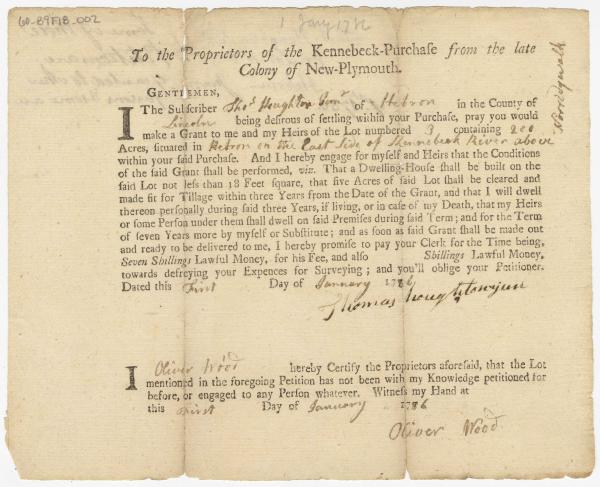 60-89F18-002
1 Jany 1786
To the Proprietors of the Kennebeck-Purchaſe from the late
Colony of New-Plymouth.
Norridgwalk
GENTLEMEN,
I The Subſcriber Thos Houghton Junr of Hebron in the County of
Lincoln being deſirous of ſettling within your Purchaſe, pray you would
make a Grant to me and my Heirs of the Lot numbered 3 containing 200
Acres, situated in Hebron on the East Side of Kennebeck River above
within your said Purchaſe. And I hereby engage for myself and Heirs that the Conditions
of the said Grant ſhall be performed, viz. That a Dwelling-Houſe ſhall be built on the
said Lot not leſs than 18 Feet ſquare, that five Acres of said Lot ſhall be cleared and
made fit for Tillage within three Years from the Date of the Grant, and that I will dwell
thereon perſonally during said three Years, if living, or in caſe of my Death, that my Heirs
or ſome Perſon under them ſhall dwell on said Premiſes during said Term; and for the Term
of ſeven Years more by myſelf or Subſtitute; and as ſoon as said Grant ſhall be made out
and ready to be delivered to me, I hereby promiſe to pay your Clerk for the Time being,
Seven Shillings Lawful Money, for his Fee, and alſo Shillings Lawful Money,
towards defreying your Expences for Surveying; and you'll oblige your Petitioner.
Dated this First Day of January 1786
Thomas houghtonjun
I Oliver Wood hereby Certify the Proprietors aforeſaid, that the Lot
mentioned in the foregoing Petition has not been with my Knowledge petitioned for
before, or engaged to any Perſon whatever. Witneſs my Hand at
this First Day of January 1786
Oliver Wood